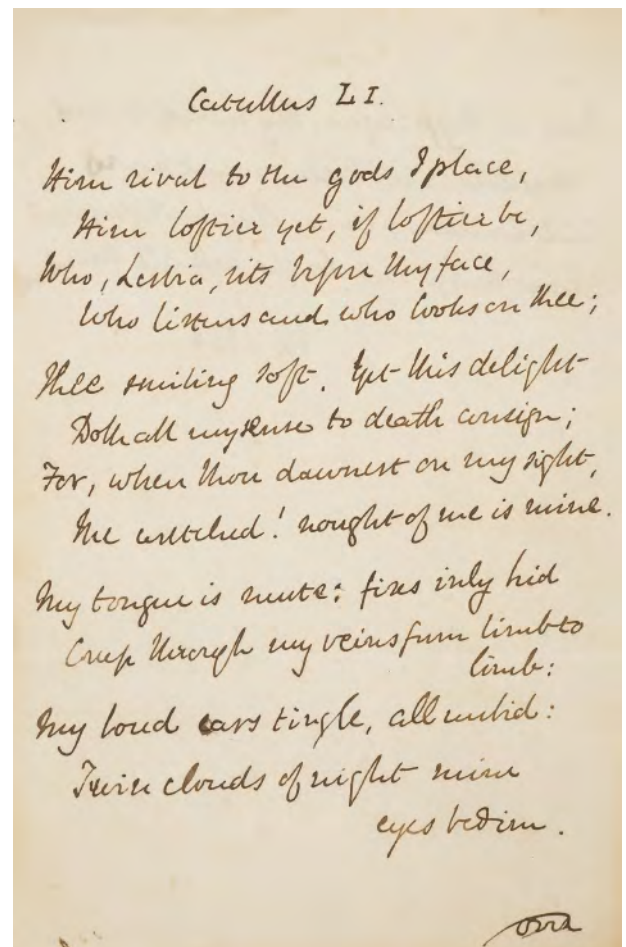 Catullus LI.
Him rival to the gods I place,
Him loftier yet, if loftier be,
Who, Lesbia, sits before thy face,
Who listens and who looks on thee;
Thee smiling soft. Yet this delight
Doth all my sense to death consign;
For, when thou dawnest on my sight,
Me wretched! nought of me is mine.
My tongue is mute: fires inly hid
Creep through my veins from limb to
limb:
My loud ears tingle, all unbid:
Twin clouds of night mine
eyes bedim.
over